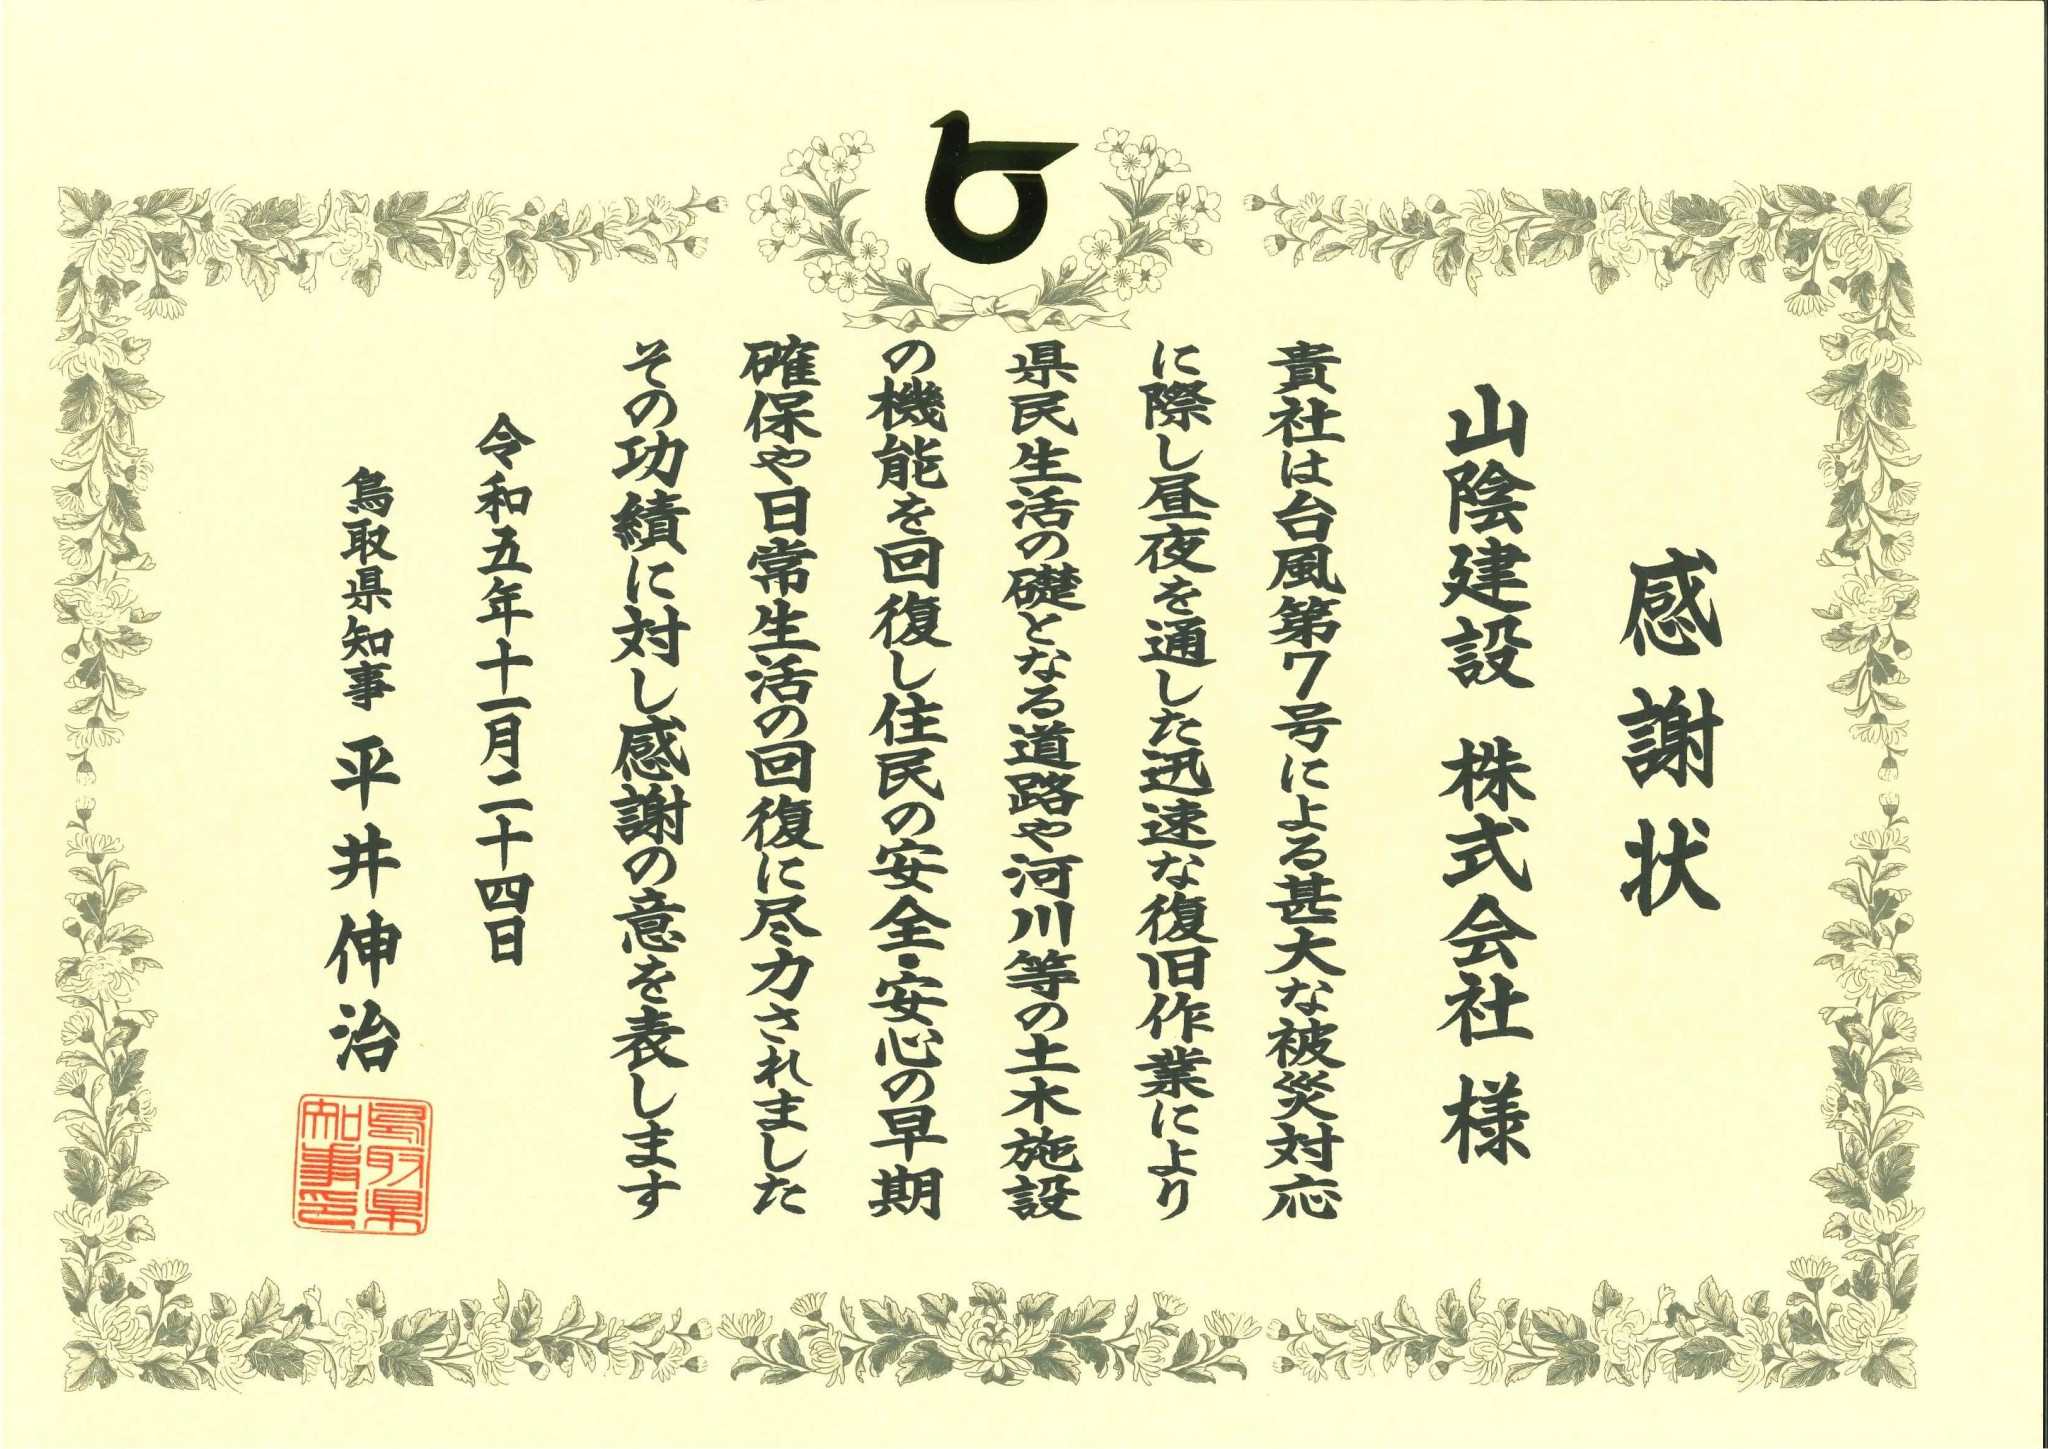 感謝状
山陰建設 株式会社 様
貴社は台風第7号による甚大な被災対応
に際し昼夜を通した迅速な復旧作業により
県民生活の礎となる道路や河川等の土木施設
の機能を回復し住民の安全・安心の早期
確保や日常生活の回復に尽力されました
その功績に対し感謝の意を表します
令和五年十一月二十四日
鳥取県知事 平井伸治
鳥取県
知事印